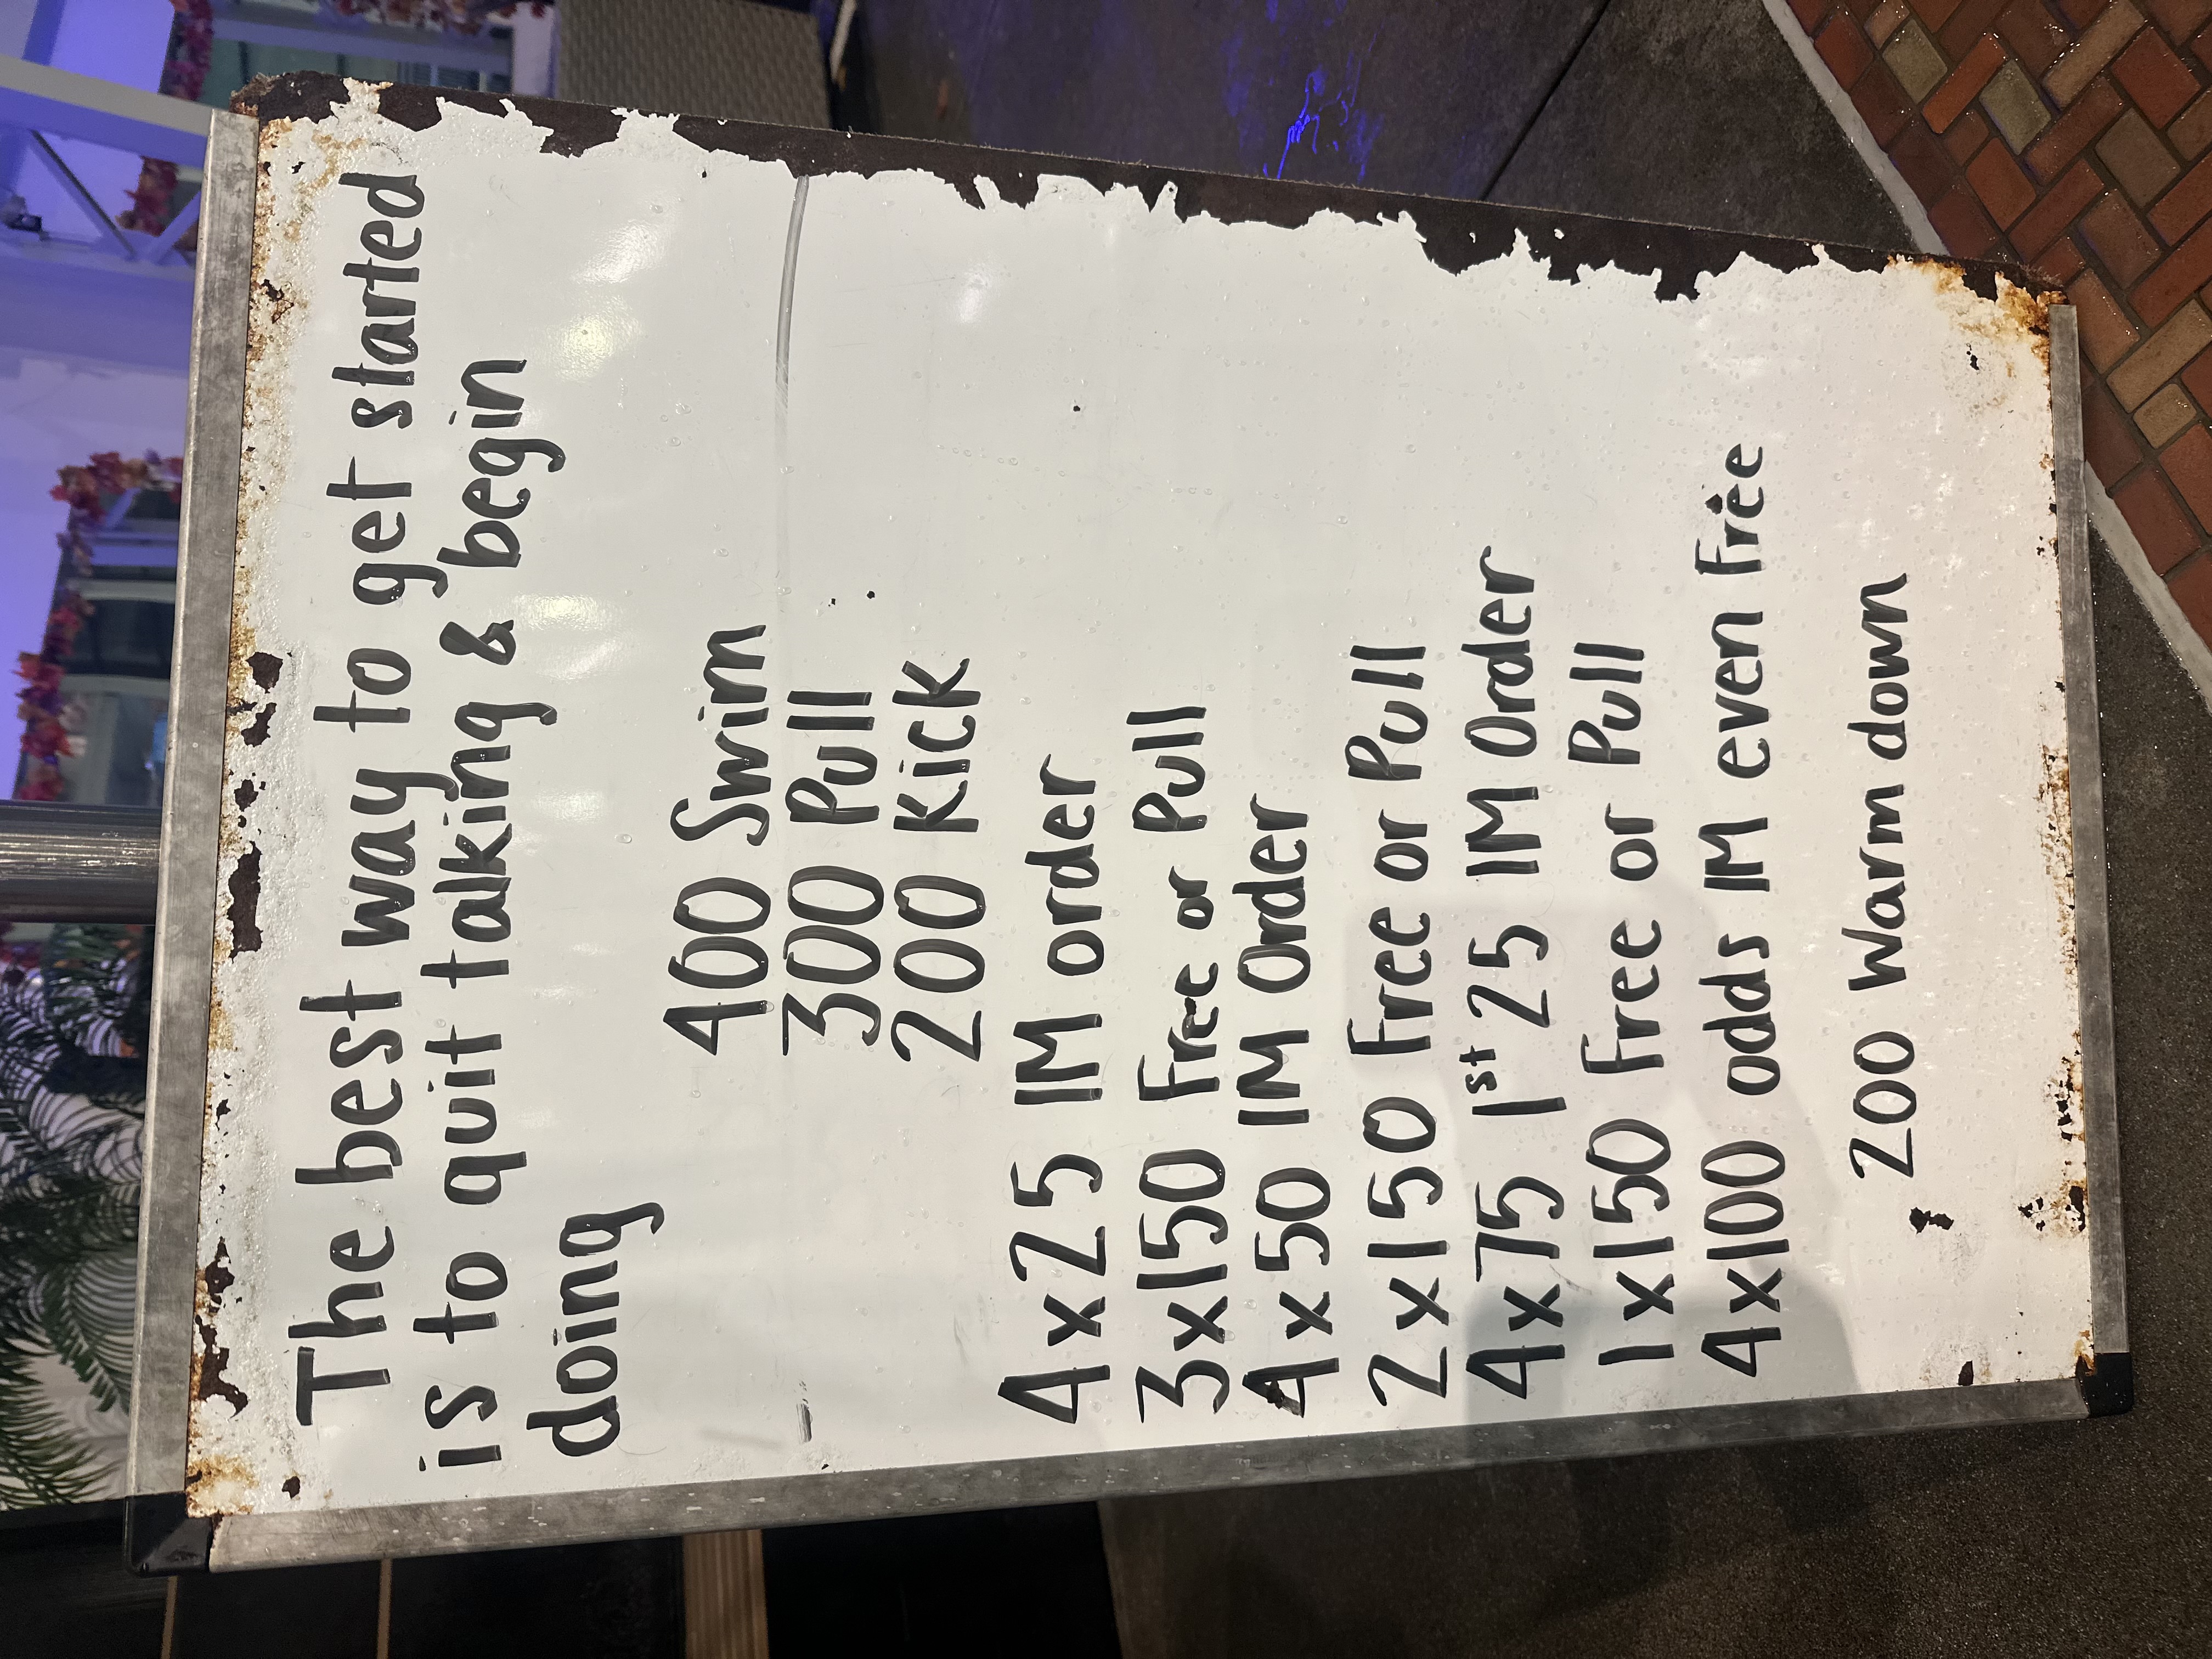 The best way to get started
is to quit talking & begin
doing
400 Swim
300 Pull
200 Kick
4x25 IM order
3x150 Free or Pull
4x50 IM Order
2x150 Free or Pull
4x75 1st 25 IM Order
1x150 Free or Pull
4x100 odds IM even Free
200 Warm down